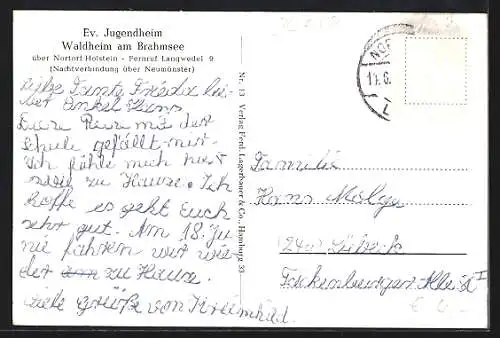 Ev. Jugendheim
Waldheim am Brahmsee
über Nortorf Holstein - Fernruf Langwedel 9
(Nachtverbindung über Neumünster)
Tante Frieda lie-
ber Onkel Hans
mit der
Schule gefällt mir.
Ich fühle mich hier
zu Hause. Ich
hoffe es geht Euch
sehr gut. Am 18. Ju
ni fahren wir wie
der zu Hause.
viele Grüße von
Nr. 13 Verlag Ferd. Lagerbauer & Co., Hamburg 33
Familie
Hans
(24a) Lübeck
Allee